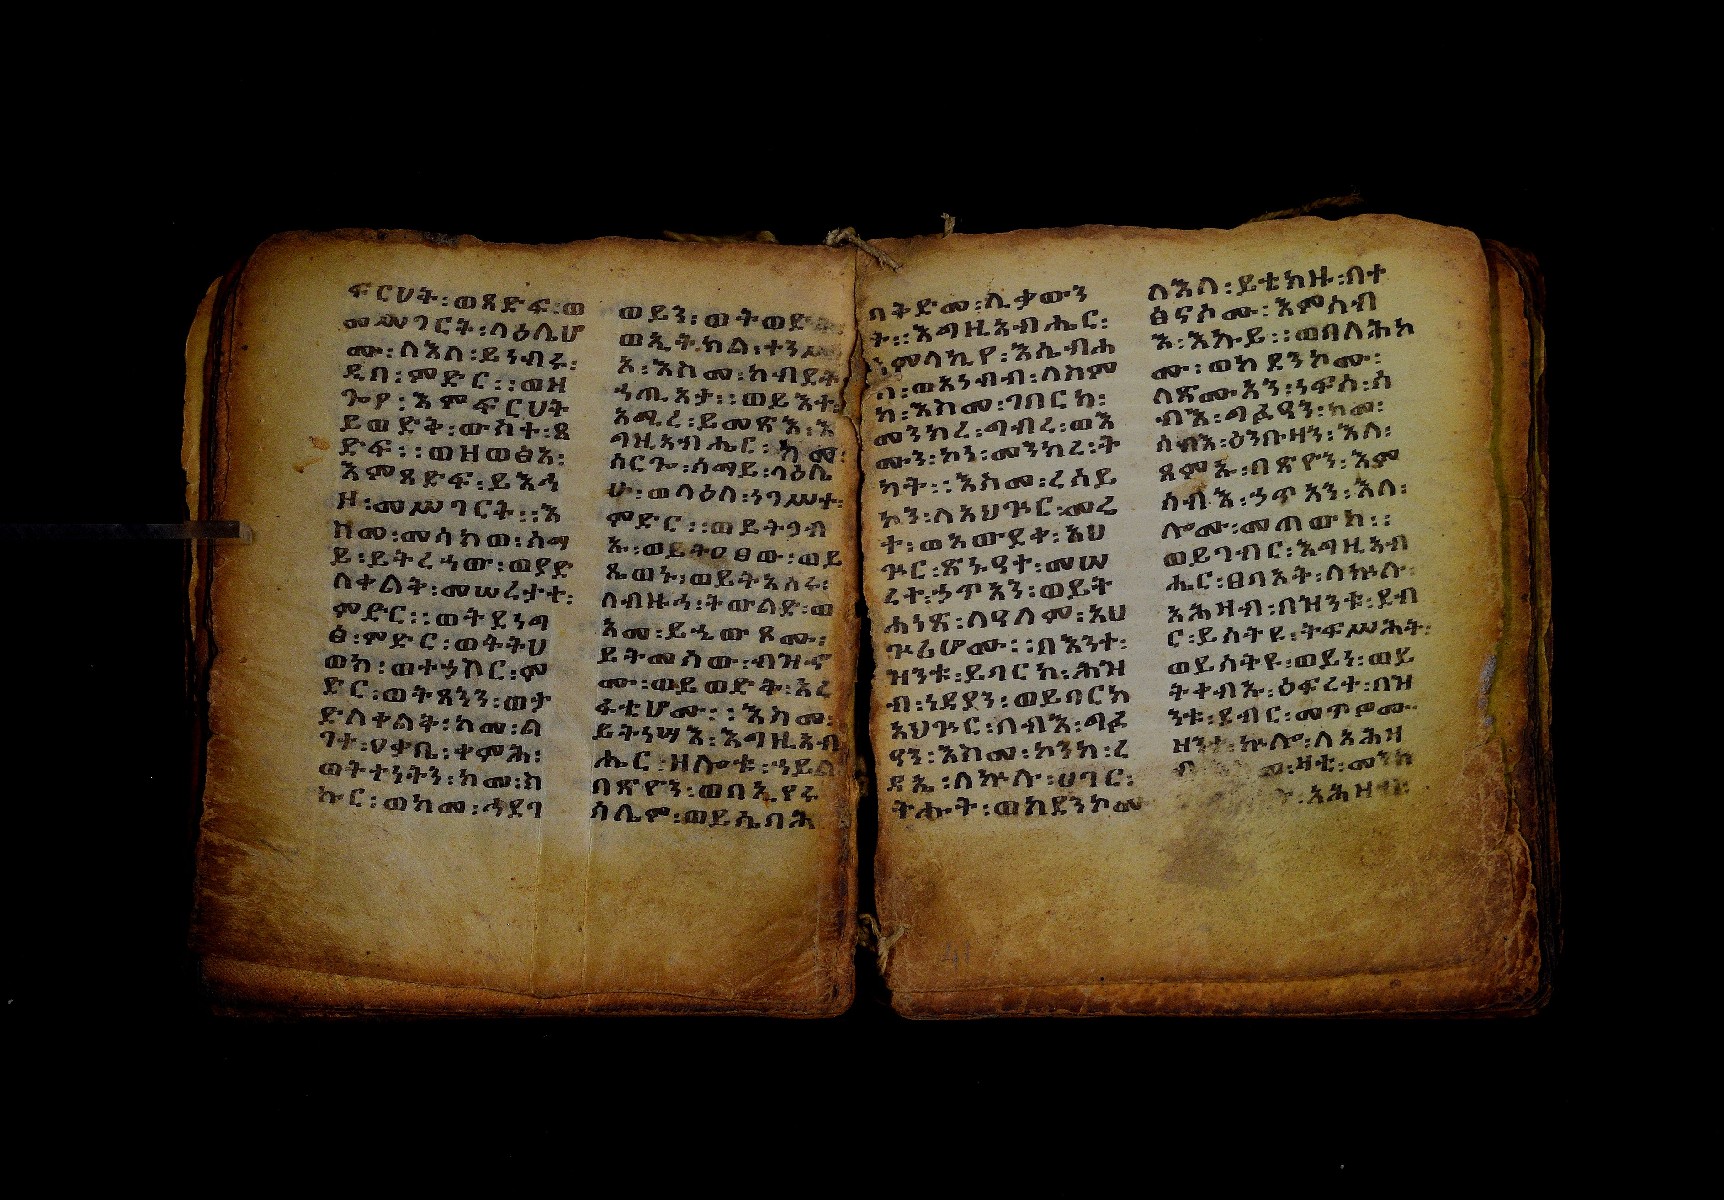 ፍርሀት፡ወጸድፍ፡ወ
መሥገርት፡ላዕሌሆ
ሙ፡ለእለ፡ይነብሩ፡
ዲበ፡ምድር፡፡ወዘ
ጐየ፡እምፍርሀት
ይወድቅ፡ውስተ፡ጸ
ድፍ፡፡ወዘወፅአ፡
እምጸድፍ፡ይእኅ
ዞ፡መሥገርት፡፡እ
ስመ፡መሳክወ፡ሰማ
ይ፡ይትረኀው፡ወያድ
ለቀልቅ፡መሠረታተ፡
ምድር፡፡ወትደነግ
ፅ፡ምድር፡ወትትሀ
ወክ፡ወተኃስር፡ም
ድር፡ወትጸንን፡ወታ
ድለቀልቅ፡ከመ፡ል
ገተ፡ዐቃቤ፡ቀምሕ፡
ወትተነትን፡ከመ፡ስ
ኩር፡ወከመ፡ኅደገ
ወይን፡ወትወድቅ፡
ወኢትክል፡ተንሥ
አ፡እስመ፡ከብደት
ኀጢአታ፡፡ወይእተ፡
አሚረ፡ይመጽእ፡እ
ግዚአብሔር፡ከመ፡
ሰርጐ፡ሰማይ፡ላዕሌ
ሁ፡ወላዕለ፡ነገሥተ፡
ምድር፡፡ወይትጋብ
ኡ፡ወይትዐፀው፡ወይ
ጼወኑ፡ወይትአሰሩ፡
ለብዙኅ፡ትውልድ፡ወ
አመ፡ይሔውጾሙ፡
ይትመሰው፡ብዝኆ
ሙ፡ወይወድቅ፡አረ
ፋቲሆሙ፡፡እስመ፡
ይትነሣእ፡እግዚአብ
ሔር፡ዘሎቱ፡ኀይል
በጽዮን፡ወበኢየሩ
ሳሌም፡ወይሴባሕ
በቅድመ፡ሊቃውን
ት፡፡እግዚአብሔር፡
አምላኪየ፡እሴብሐ
ከ፡ወእነብብ፡ለስም
ከ፡እስመ፡ገበርከ፡
መንክረ፡ግብረ፡ወእ
ሙን፡ኮነ፡መንክረ፡ት
ካት፡፡እስመ፡ረሰይ
ኮን፡ለአህጉር፡መሬ
ተ፡ወእውደቀ፡አህ
ጉር፡ጽኑዓተ፡መሠ
ረተ፡ኃጥአን፡ወይት
ሐነጽ፡ለዓለም፡አህ
ጉሪሆሙ፡፡በእንተ፡
ዝንቱ፡ይባርኩ፡ሕዝ
ብ፡ነዳያን፡ወይባርካ
አህጉር፡በብእ፡ግፉ
ዓን፡እስመ፡ኮንከ፡ረ
ዳኤ፡ለኵሉ፡ሀገር፡
ትሑት፡ወከደንኮሙ
ለእለ፡ይቴክዙ፡በተ
ፅናሶሙ፡እምሰብ
እ፡እኩይ፡፡ወበላሕከ
ሙ፡ወከደንኮሙ፡
ለጽሙአን፡ነፍሰ፡ሰ
ብእ፡ግፉዓን፡ከመ፡
ሰብእ፡ዕንቡዛን፡እለ፡
ጸምኡ፡በጽዮን፡እም
ሰብእ፡ኃጥአን፡እለ፡
ሎሙ፡መጠውከ፡፡
ወይገብር፡እግዚአብ
ሔር፡ፀባኦት፡ለኵሉ፡
አሕዛብ፡በዝንቱ፡ደብ
ር፡ይሰትዩ፡ትፍሥሕት፡
ወይሰትዩ፡ወይነ፡ወይ
ትቀብኡ፡ዕፍረተ፡በዝ
ንቱ፡ደብር፡መጥዎሙ
ዘንተ፡ኵሎ፡ለአሕዛ
አሕዛብ